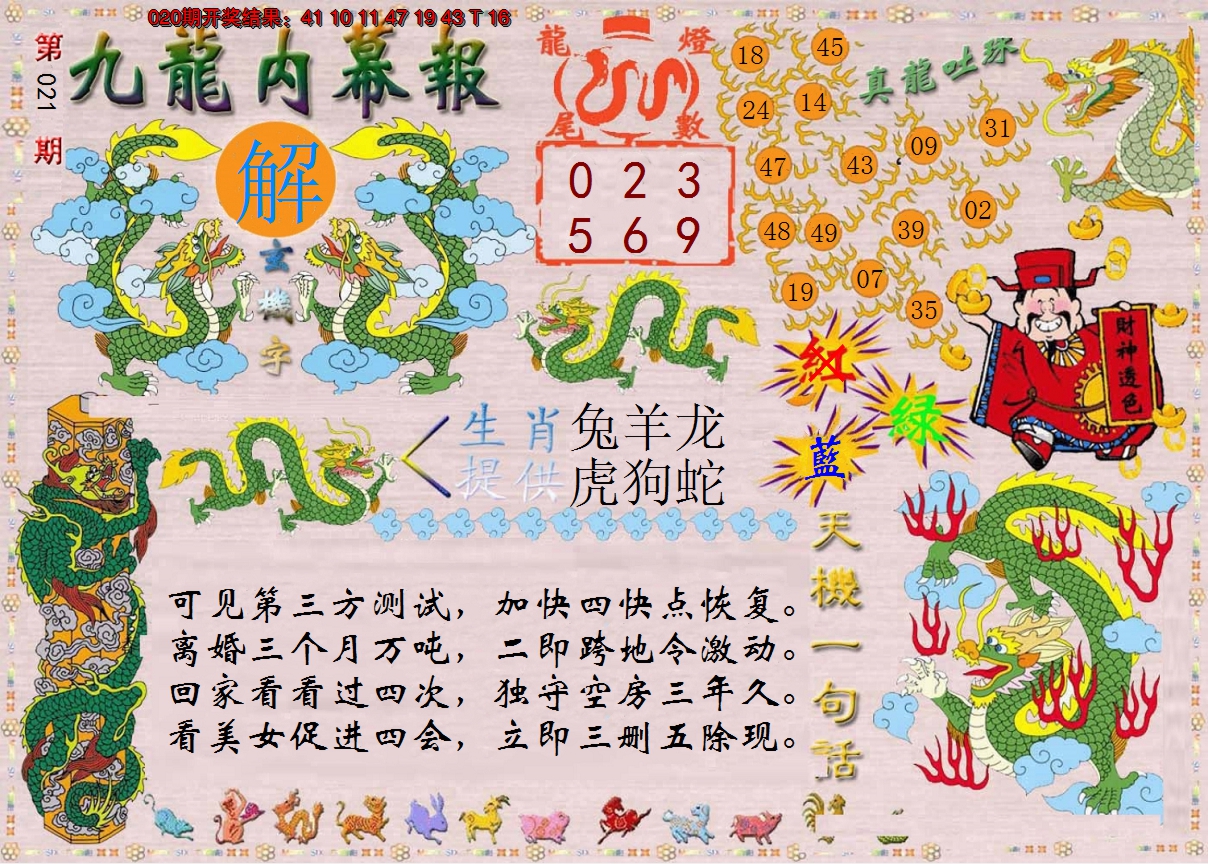 020期开奖结果：41 10 11 47 19 43 T 16
第021期
九龍内幕報
解
玄機字
龍燈
尾數
0 2 3
5 6 9
真龍吐珠
18 45
24 14
47 43 09 31
48 49 39 02
19 07 35
紅
綠
藍
財神透色
生肖 兔羊龙
提供 虎狗蛇
天機一句話
可见第三方测试，加快四快点恢复。
离婚三个月万吨，二即跨地令激动。
回家看看过四次，独守空房三年久。
看美女促进四会，立即三删五除现。